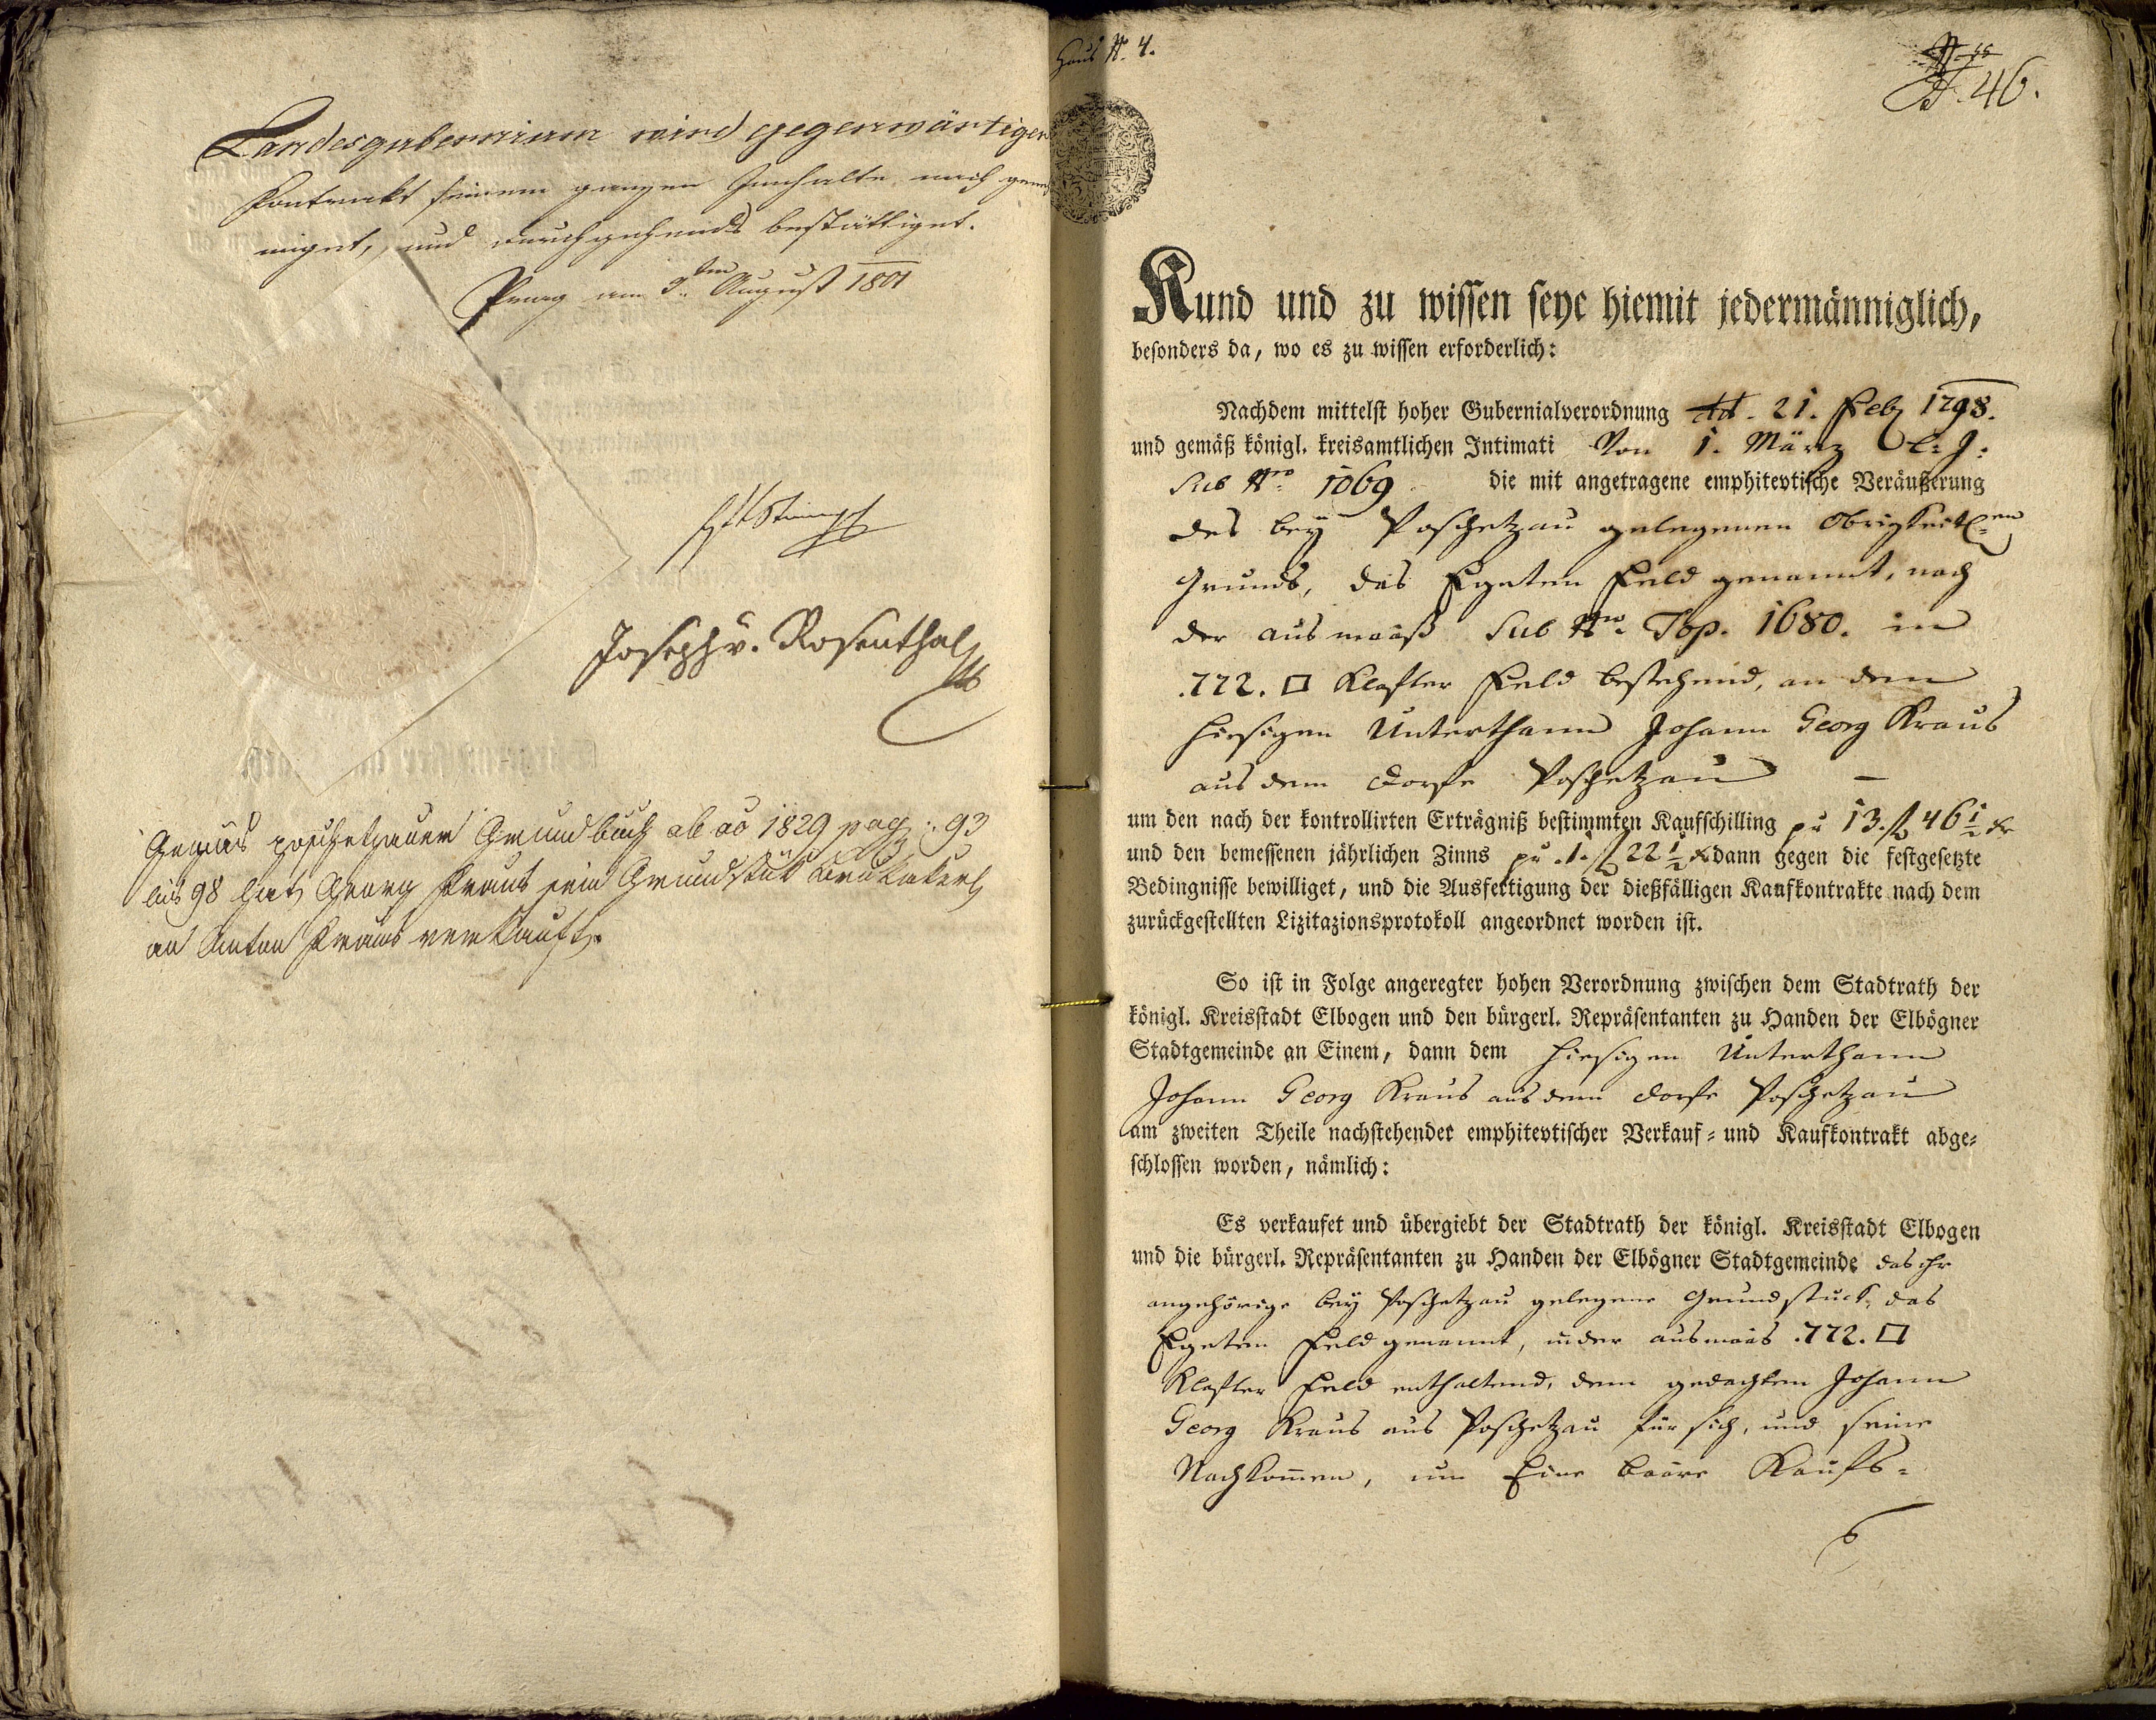 Landesgubernium wird gegenwärtiger
Kontrakt seinem ganzen Innhalte nach geneh
miget, und durchgehends bestättiget.
Prag am 3ten August 1801
Joseph v. Rosenthal
Gemäs poschetzauer Grundbuch ab ao 1829 pag: 93
bis 98 hat Georg Kraus sein Grundstük
an Anton Kraus verkauft.
Haus N. 4.
N. 46.
Kund und zu wissen seye hiemit jedermänniglich,
besonders da, wo es zu wissen erforderlich:
Nachdem mittelst hoher Gubernialverordnung dd. 21. Feb 1798.
und gemäß königl. kreisamtlichen Intimati Von 1. März e: J:
Sub Nro 1069 die mit angetragene emphitevtische Veräußerung
des bey Poschetzau gelegenen Obrigkeitl:en
Grunds, das Egeten Feld genannt, nach
der ausmaaß Sub Nro Top. 1680. in
.772. □ Klafter Feld bestehend, an dem
hiesigen Unterthann Johann Georg Kraus
aus dem Dorfe Poschetzau —
um den nach der kontrollirten Erträgniß bestimmten Kaufschilling pr 13. f 46 1/2 kr
und den bemessenen jährlichen Zinns pr .1. f 22 1/2 x dann gegen die festgesetzte
Bedingnisse bewilliget, und die Ausfertigung der dießfälligen Kaufkontrakte nach dem
zurückgestellten Lizitazionsprotokoll angeordnet worden ist.
So ist in Folge angeregter hohen Verordnung zwischen dem Stadtrath der
königl. Kreisstadt Elbogen und den bürgerl. Repräsentanten zu Handen der Elbögner
Stadtgemeinde an Einem, dann dem hiesigen Unterthann
Johann Georg Kraus aus dem Dorfe Poschetzau
am zweiten Theile nachstehender emphitevtischer Verkauf- und Kaufkontrakt abge-
schlossen worden, nämlich:
Es verkaufet und übergiebt der Stadtrath der königl. Kreisstadt Elbogen
und die bürgerl. Repräsentanten zu Handen der Elbögner Stadtgemeinde das ihr
angehörige bey Poschetzau gelegene Grundstuck, das
Egeten Feld genannt, in der ausmaas .772. □
Klafter Feld enthaltend, dem gedachten Johann
Georg Kraus aus Poschetzau für sich, und seine
Nachkom̅en, um Eine baare Kaufs-